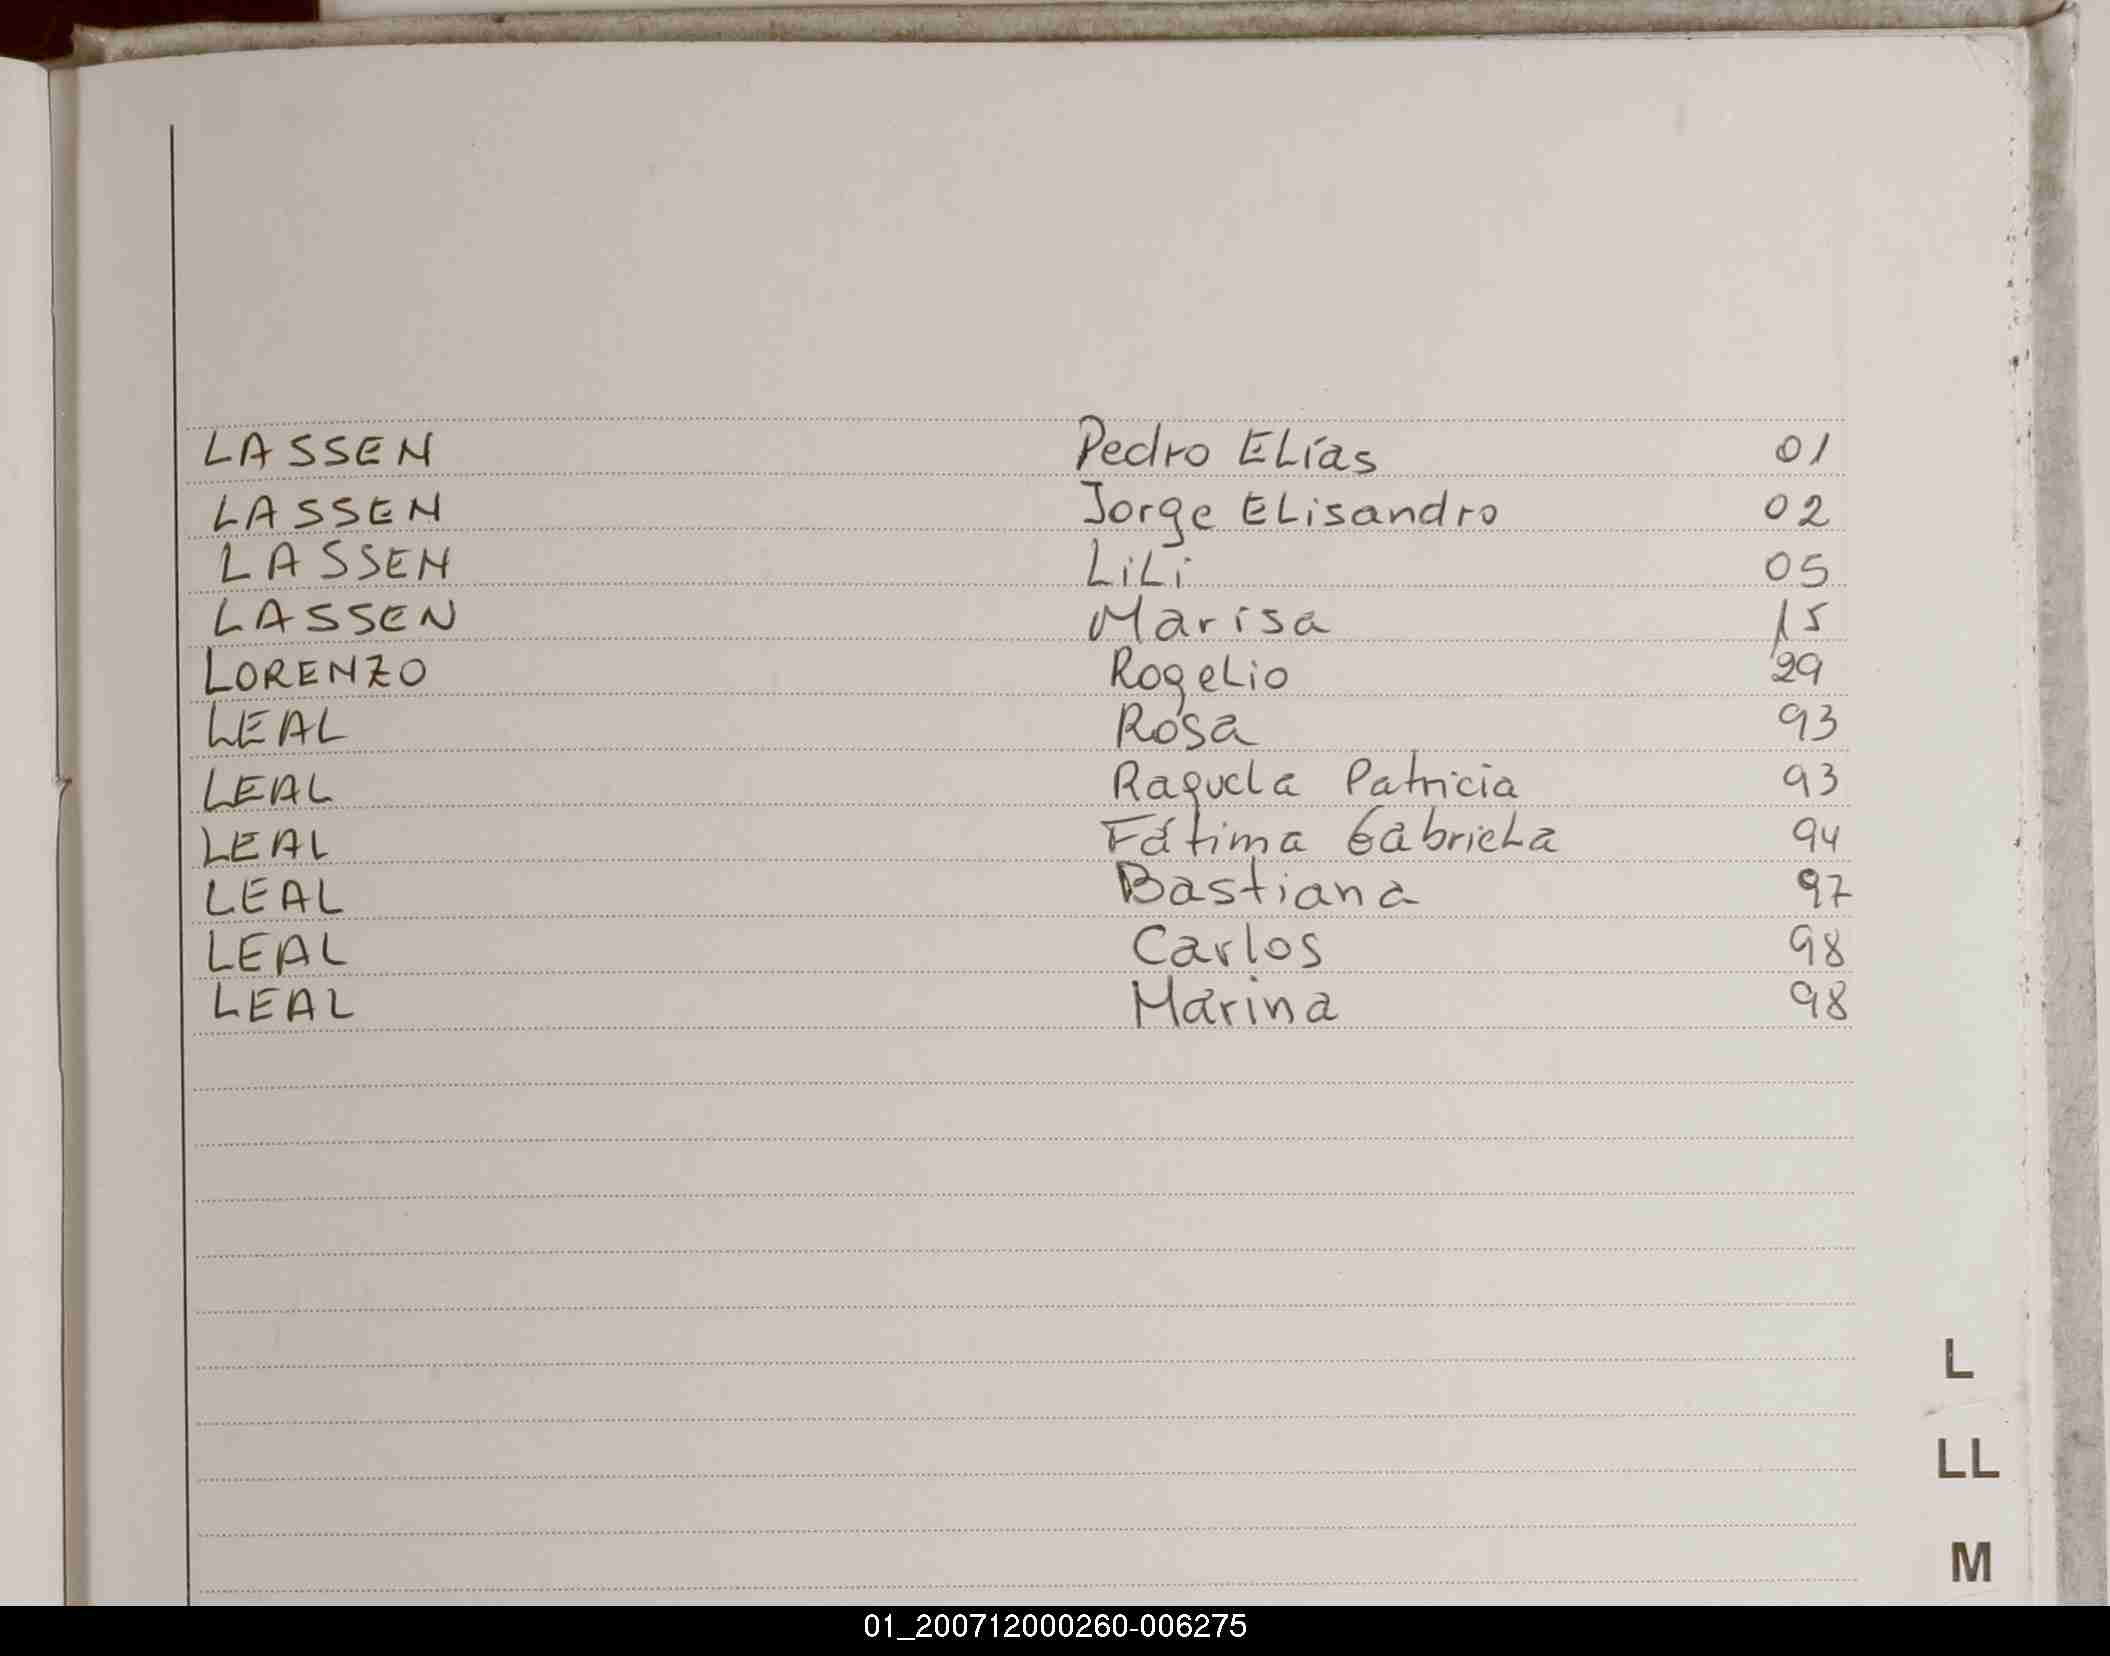 LASSEN Pedro Elías 01
LASSEN Jorge Elisandro 02
LASSEN Lili 05
LASSEN Marisa 15
LORENZO Rogelio 29
LEAL Rosa 93
LEAL Raquela Patricia 93
LEAL Fátima Gabriela 94
LEAL Bastiana 97
LEAL Carlos 98
LEAL Marina 98
L
LL
M
01_200712000260-006275